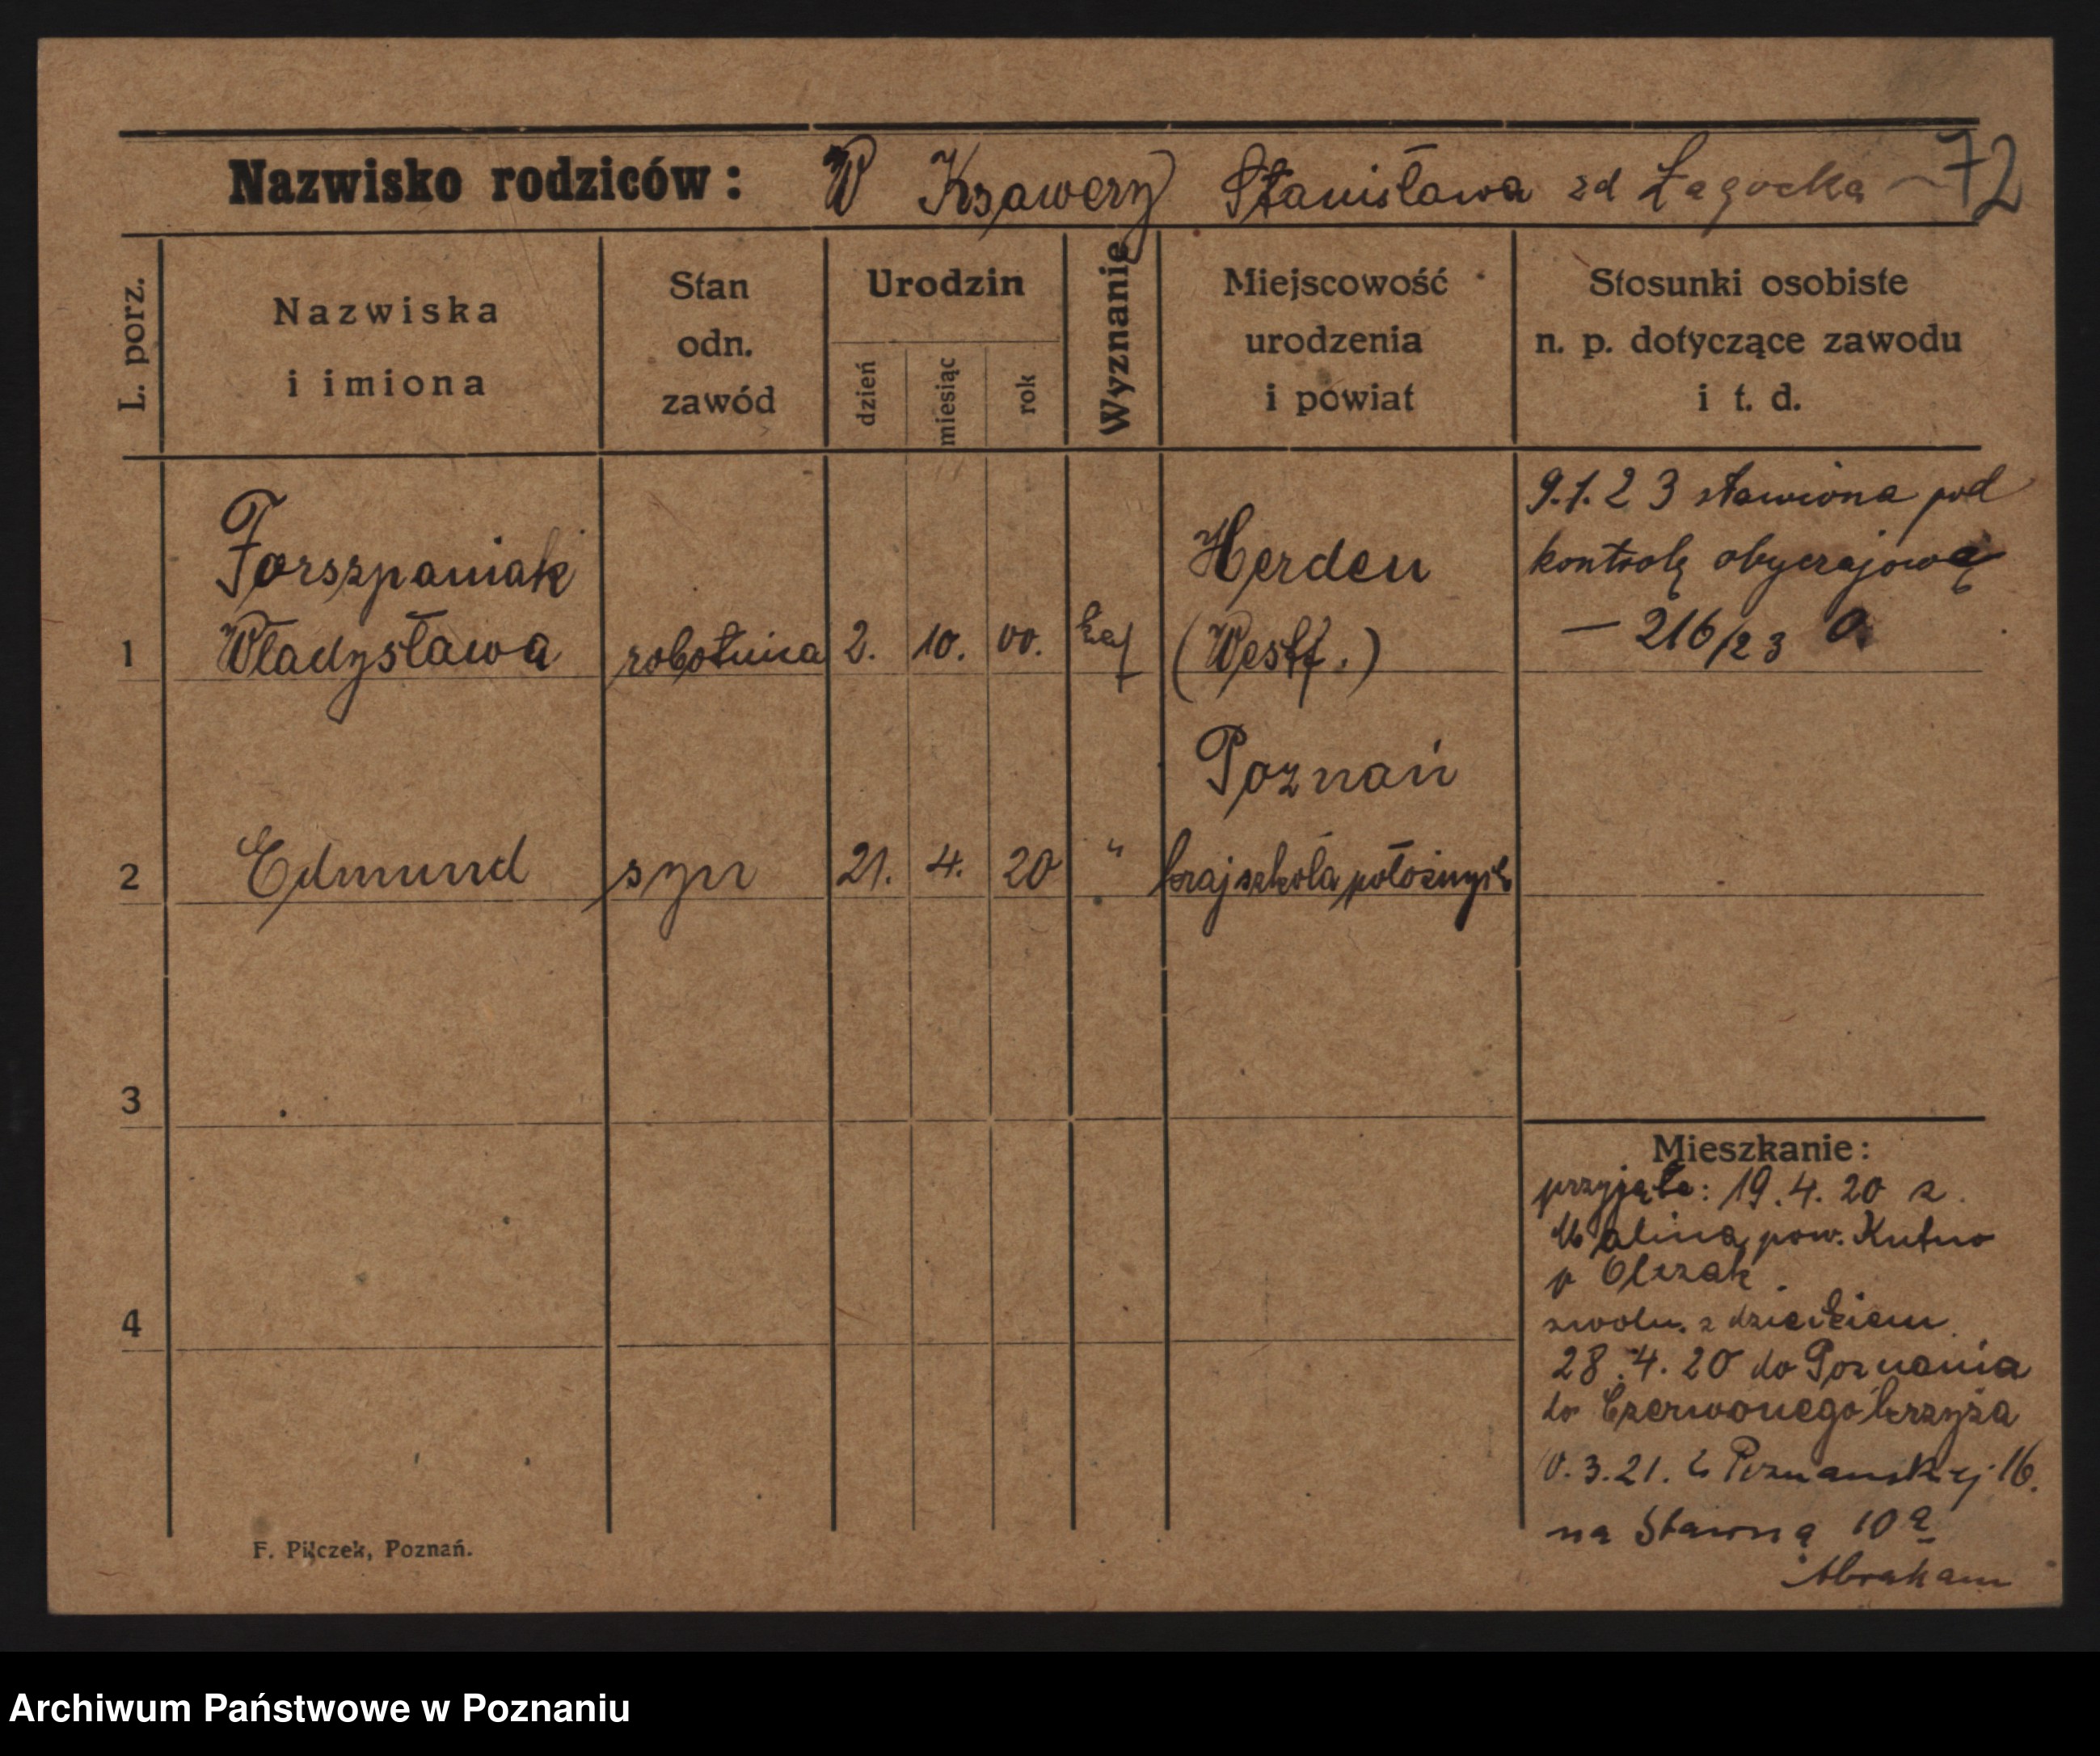 Nazwisko rodziców: W Ksawery Stanisława zd Łagocka 72
L. porz.
Nazwiska
i imiona
Stan
odn.
zawód
Urodzin
dzień
miesiąc
rok
Wyznanie
Miejscowość
urodzenia
i powiat
Stosunki osobiste
n. p. dotyczące zawodu
i t. d.
9.1.23 stawiona pod
kontrolę obyczajową
— 216/23
Forszpaniak
Herden
1 Władysława robotnica 2. 10. 00. kat (Westf.)
Poznań
2 Edmund syn 21. 4. 20 " kraj szkoła położnych
3
Mieszkanie:
przyjęta: 19.4.20 z
Malina, pow. Kutno
p Olczak.
zwoln. z dzieckiem
4
28.4.20 do Poznania
do Czerwonego krzyża
3.21. z Poznanskiej 16.
na Stawną 10a
Abraham
F. Pilczek, Poznań.
Archiwum Państwowe w Poznaniu